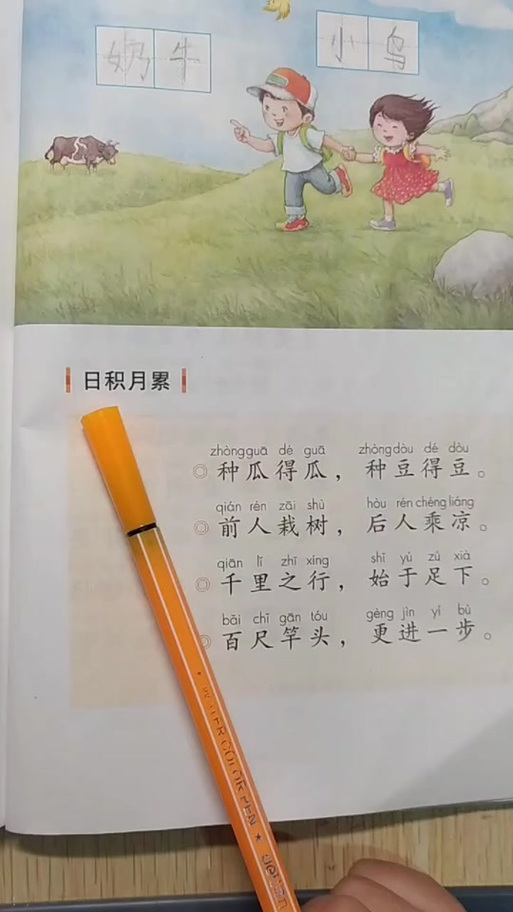 奶牛 小鸟
日积月累
zhòng guā dé guā zhòng dòu dé dòu
◎ 种瓜得瓜，种豆得豆。
qián rén zāi shù hòu rén chéng liáng
◎ 前人栽树，后人乘凉。
qiān lǐ zhī xíng shǐ yú zú xià
◎ 千里之行，始于足下。
bǎi chǐ gān tóu gèng jìn yí bù
◎ 百尺竿头，更进一步。
COLOR PEN ★ deli